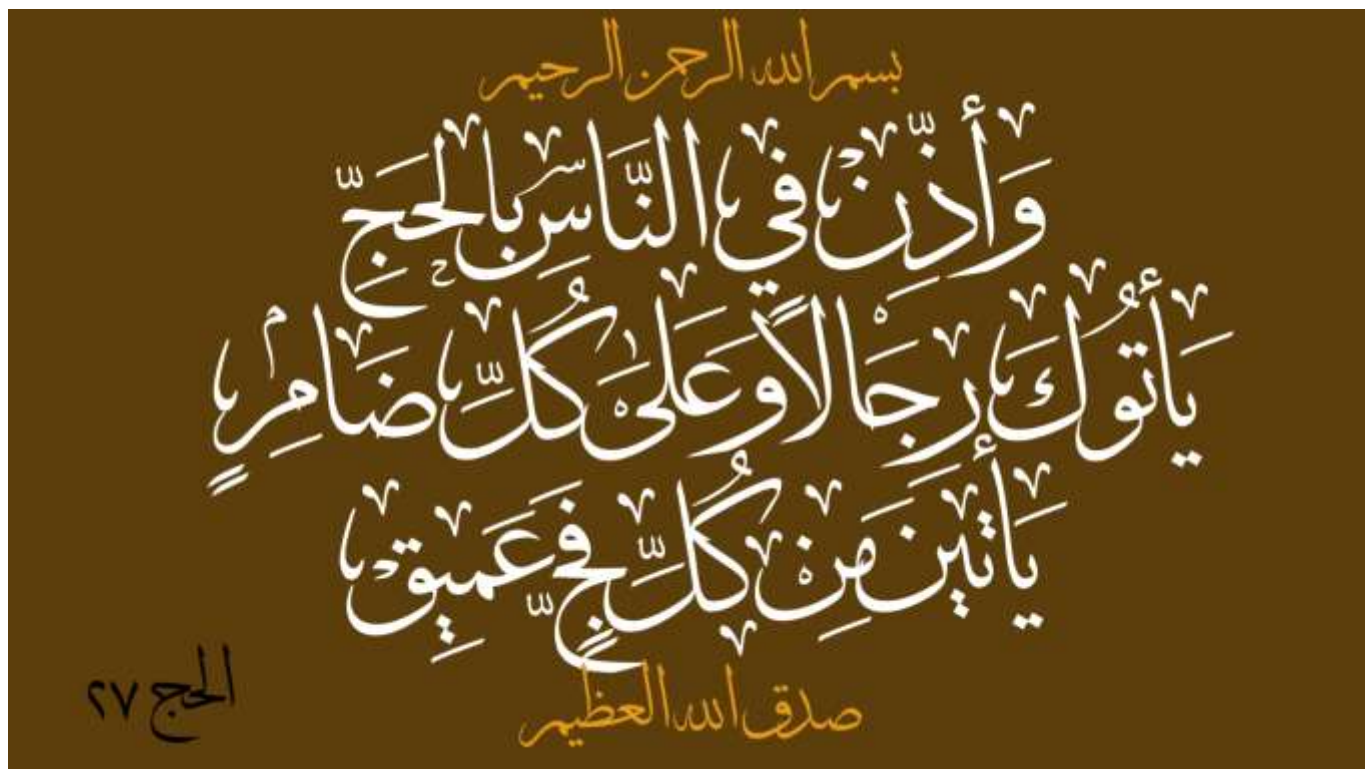 بسم الله الرحمن الرحيم
وَأَذِّنْ فِي النَّاسِ بِالْحَجِّ
يَأْتُوكَ رِجَالًا وَعَلَىٰ كُلِّ ضَامِرٍ
يَأْتِينَ مِنْ كُلِّ فَجٍّ عَمِيقٍ
صدق الله العظيم
الحج ٢٧